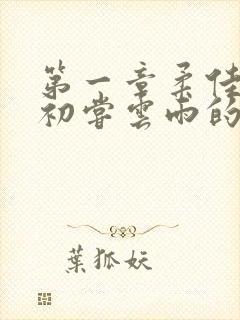 第一章柔佳
初尝雲雨的
葉狐妖